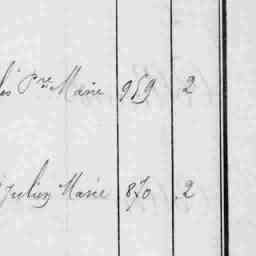 les Pre Marie 959 2
Julien Marie 870 2